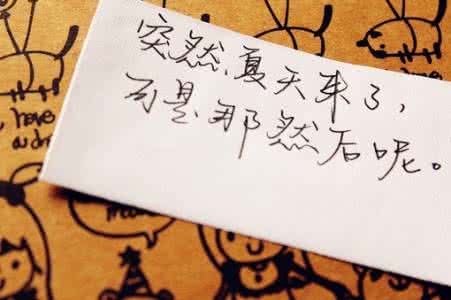 突然夏天来了，
可是那然后呢。
have
a dr
have